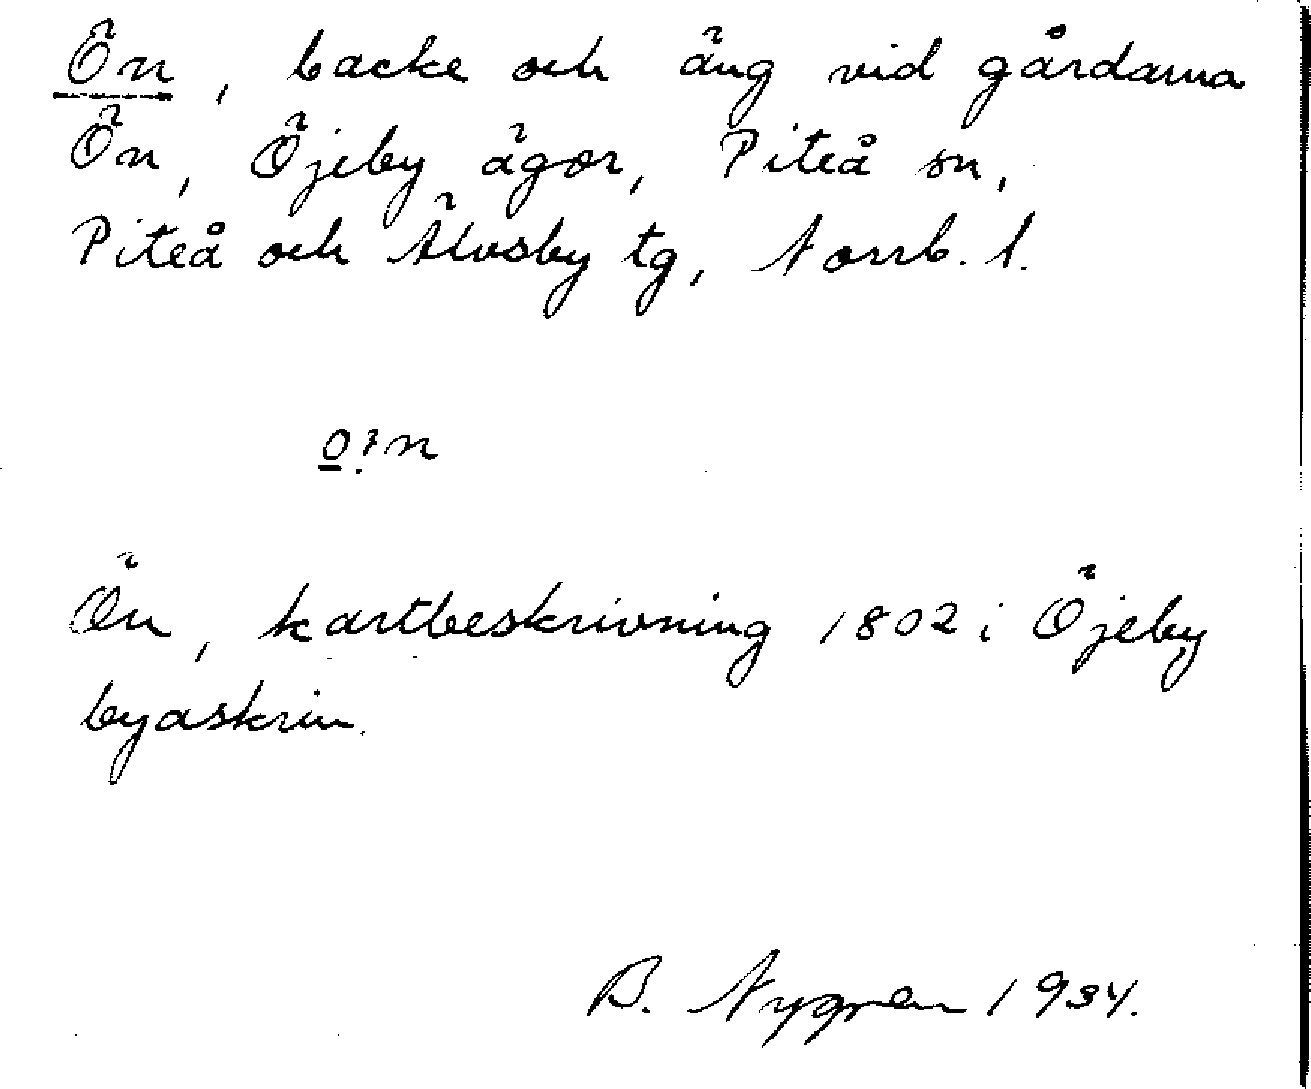 Ön, backe och äng vid gårdarna
Ön, Öjeby ägor, Piteå sn,
Piteå och Älvsby tg, Norrb. l.
Ön, kartbeskrivning 1802 i Öjeby
byaskrin.
B. Nygren 1934.